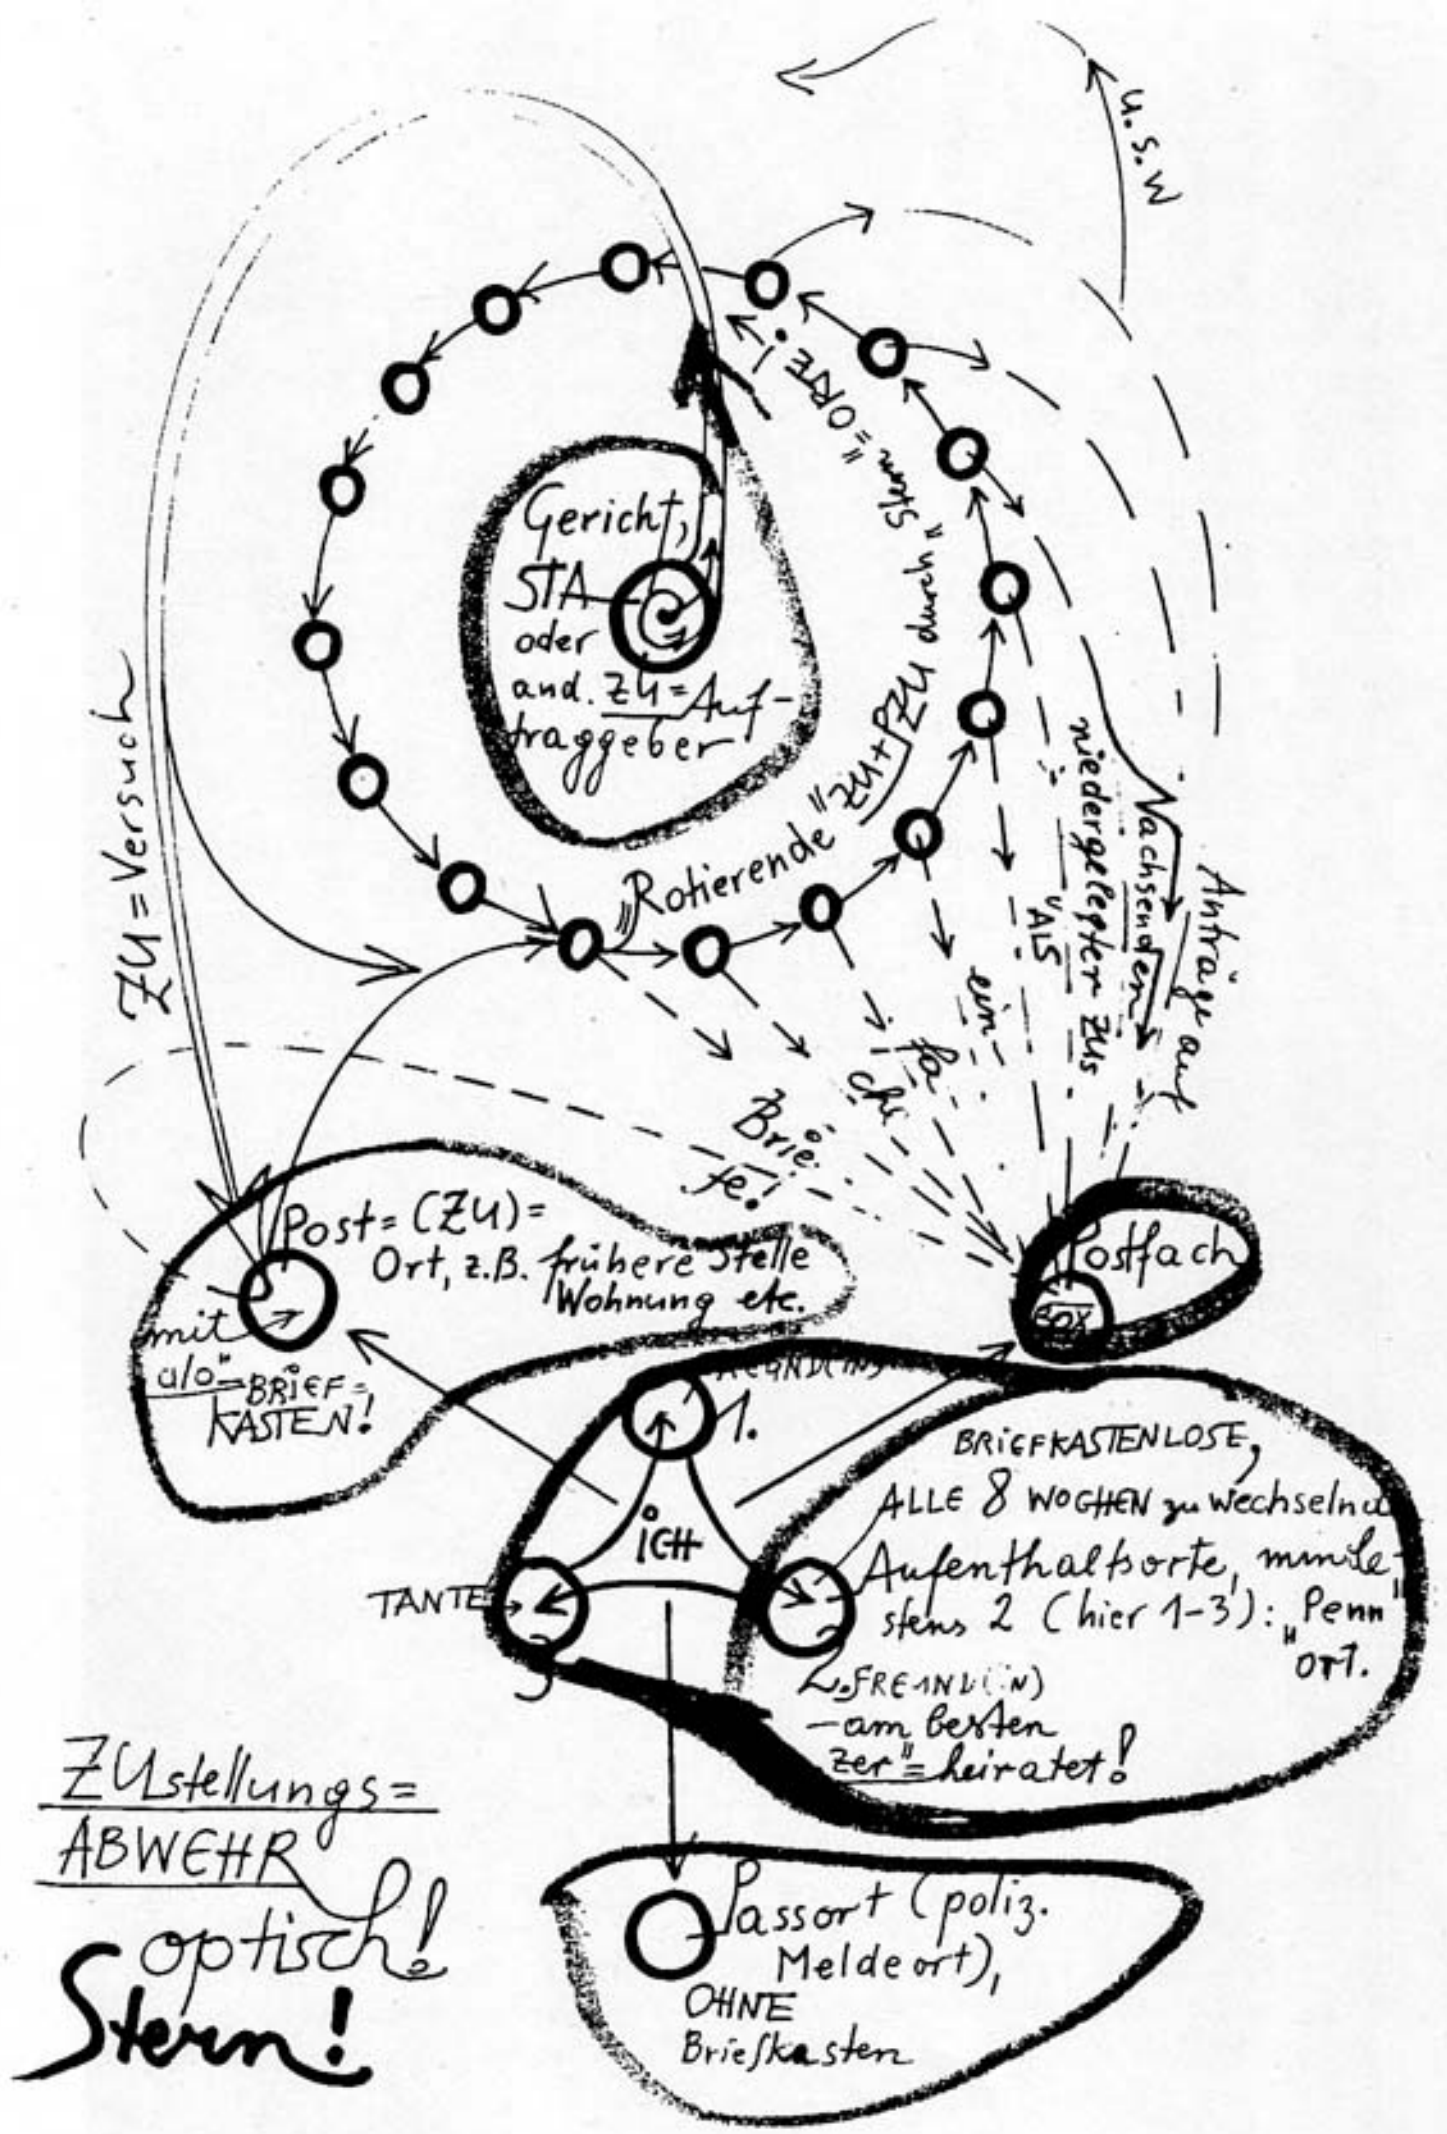 u.s.w
Gericht,
STA
oder
and. ZU = Auf-
traggeber
ZU = Versuch
"Rotierende "ZU + PZU durch "Stern" = ORTE i
Anträge auf
Nachsenden
niedergelegter ZUs
"ALS
ein-
fa-
che
Brie-
fe!
Post = (ZU) =
Ort, z.B. frühere Stelle
Wohnung etc.
mit
a/o"= BRIEF=
KASTEN!
Postfach
BOX
1.
iCH
TANTE
3
BRiEFKASTENLOSE,
ALLE 8 WOCHEN zu wechselnd
Aufenthaltsorte, minde-
stens 2 (hier 1-3): "Penn"
ORT.
2. FREUND(iN)
- am besten
zer"= heiratet!
ZUstellungs=
ABWEHR
optisch!
Stern!
Passort (poliz.
Meldeort),
OHNE
Briefkasten